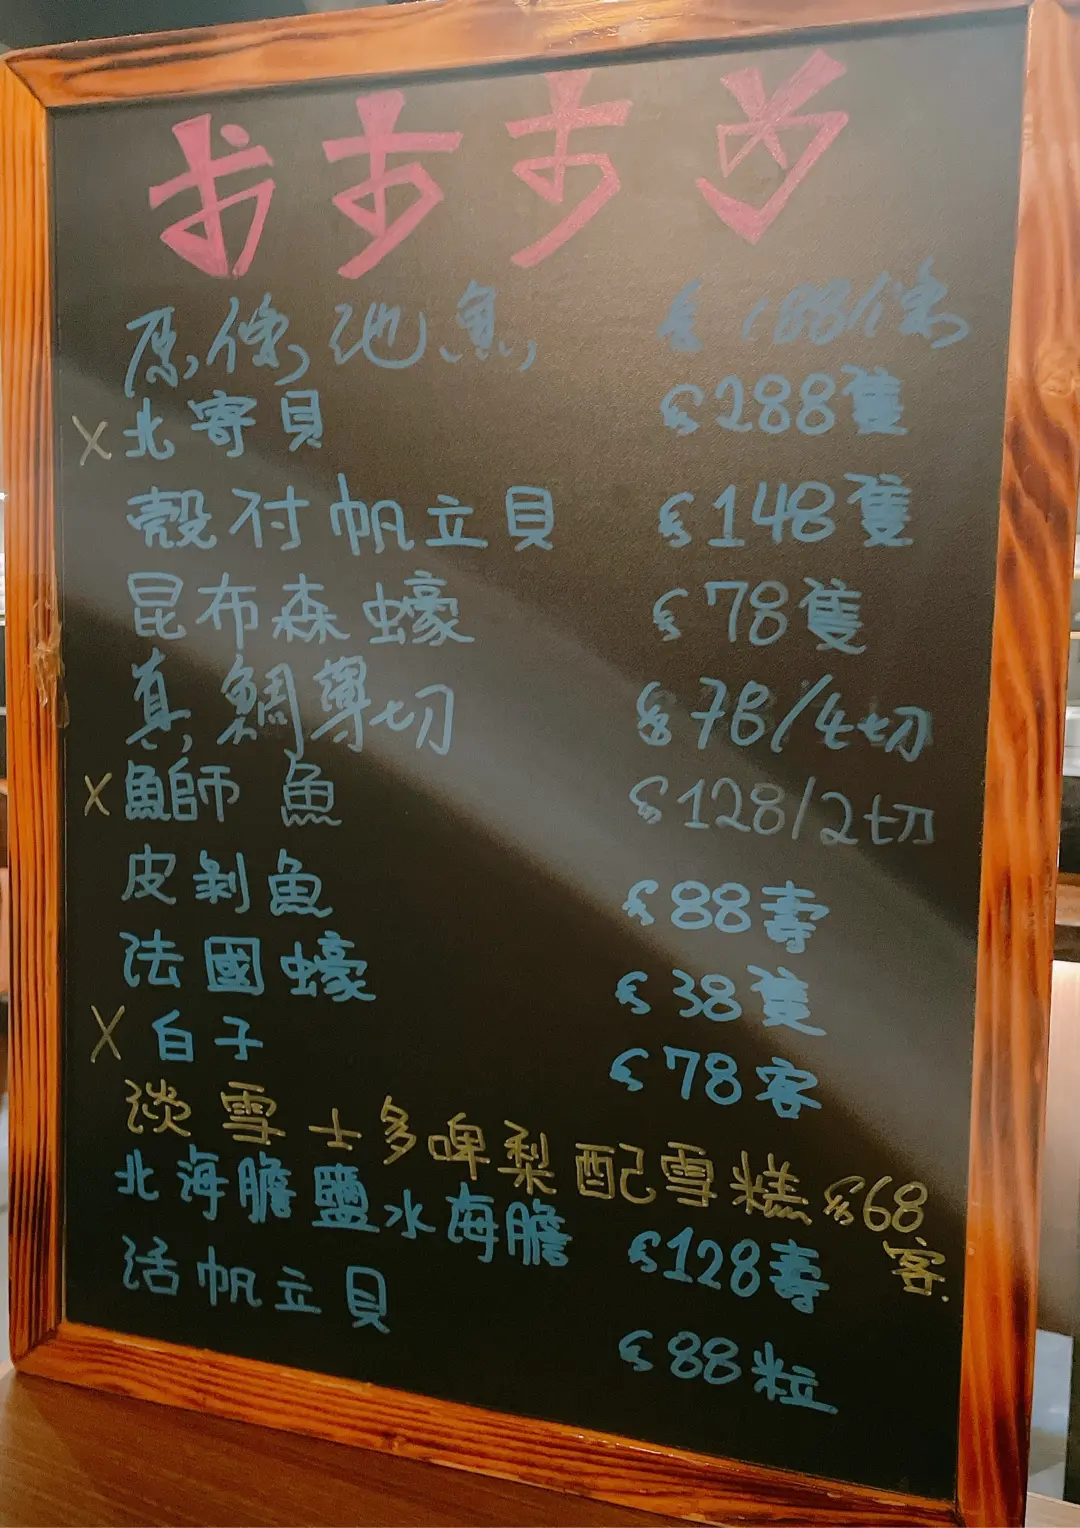 おすすめ
原條池魚 $188/條
X 北寄貝 $288隻
殼付帆立貝 $148隻
昆布森蠔 $78隻
真鯛薄切 $78/4切
X 鰤魚 $128/2切
皮剝魚 $88壽
法國蠔 $38隻
X 白子 $78客
淡雪士多啤梨配雪糕 $68客.
北海膽鹽水海膽 $128壽
活帆立貝 $88粒